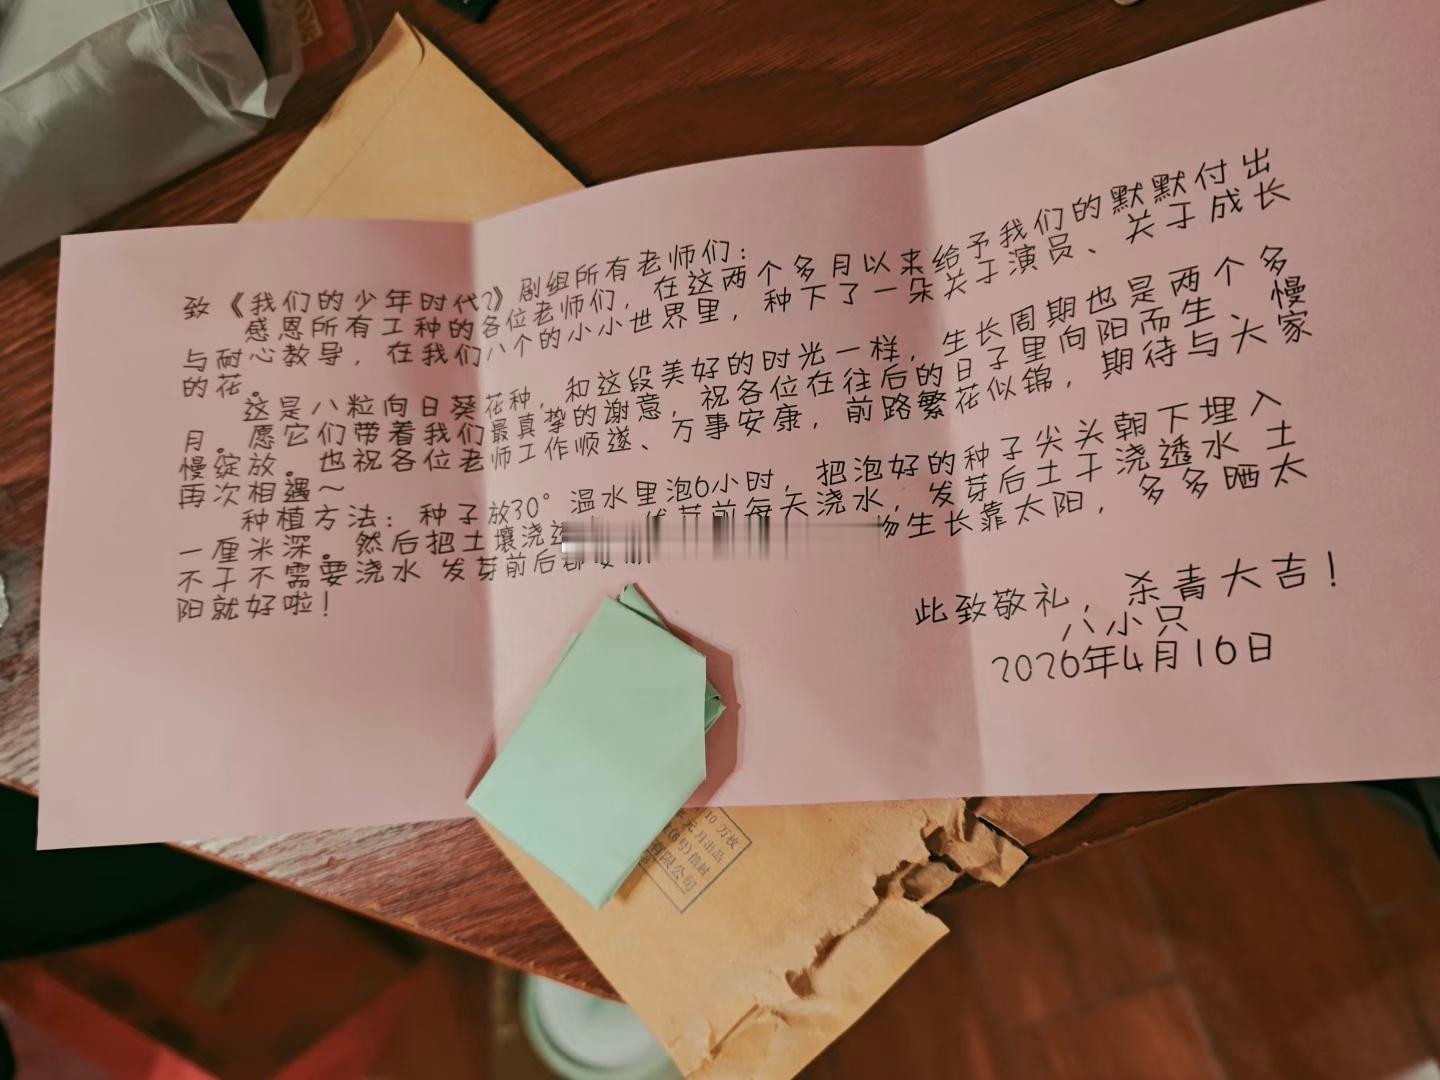 致《我们的少年时代2》剧组所有老师们：
感恩所有工种的各位老师们，在这两个多月以来给予我们的默默付出
与耐心教导，在我们八个的小小世界里，种下了一朵关于演员、关于成长
的花。
这是八粒向日葵花种，和这段美好的时光一样，生长周期也是两个多
月。愿它们带着我们最真挚的谢意，祝各位在往后的日子里向阳而生、慢
慢绽放。也祝各位老师工作顺遂、万事安康，前路繁花似锦，期待与大家
再次相遇～
种植方法：种子放30°温水里泡6小时，把泡好的种子尖头朝下埋入
一厘米深。然后把土壤浇透 每天浇水，发芽后土干浇透水 土
不干不需要浇水 发芽前后都 生长靠太阳，多多晒太
阳就好啦！
此致敬礼，杀青大吉！
八小只
2026年4月16日
10万枚
月出品
(6号)信封
有限公司